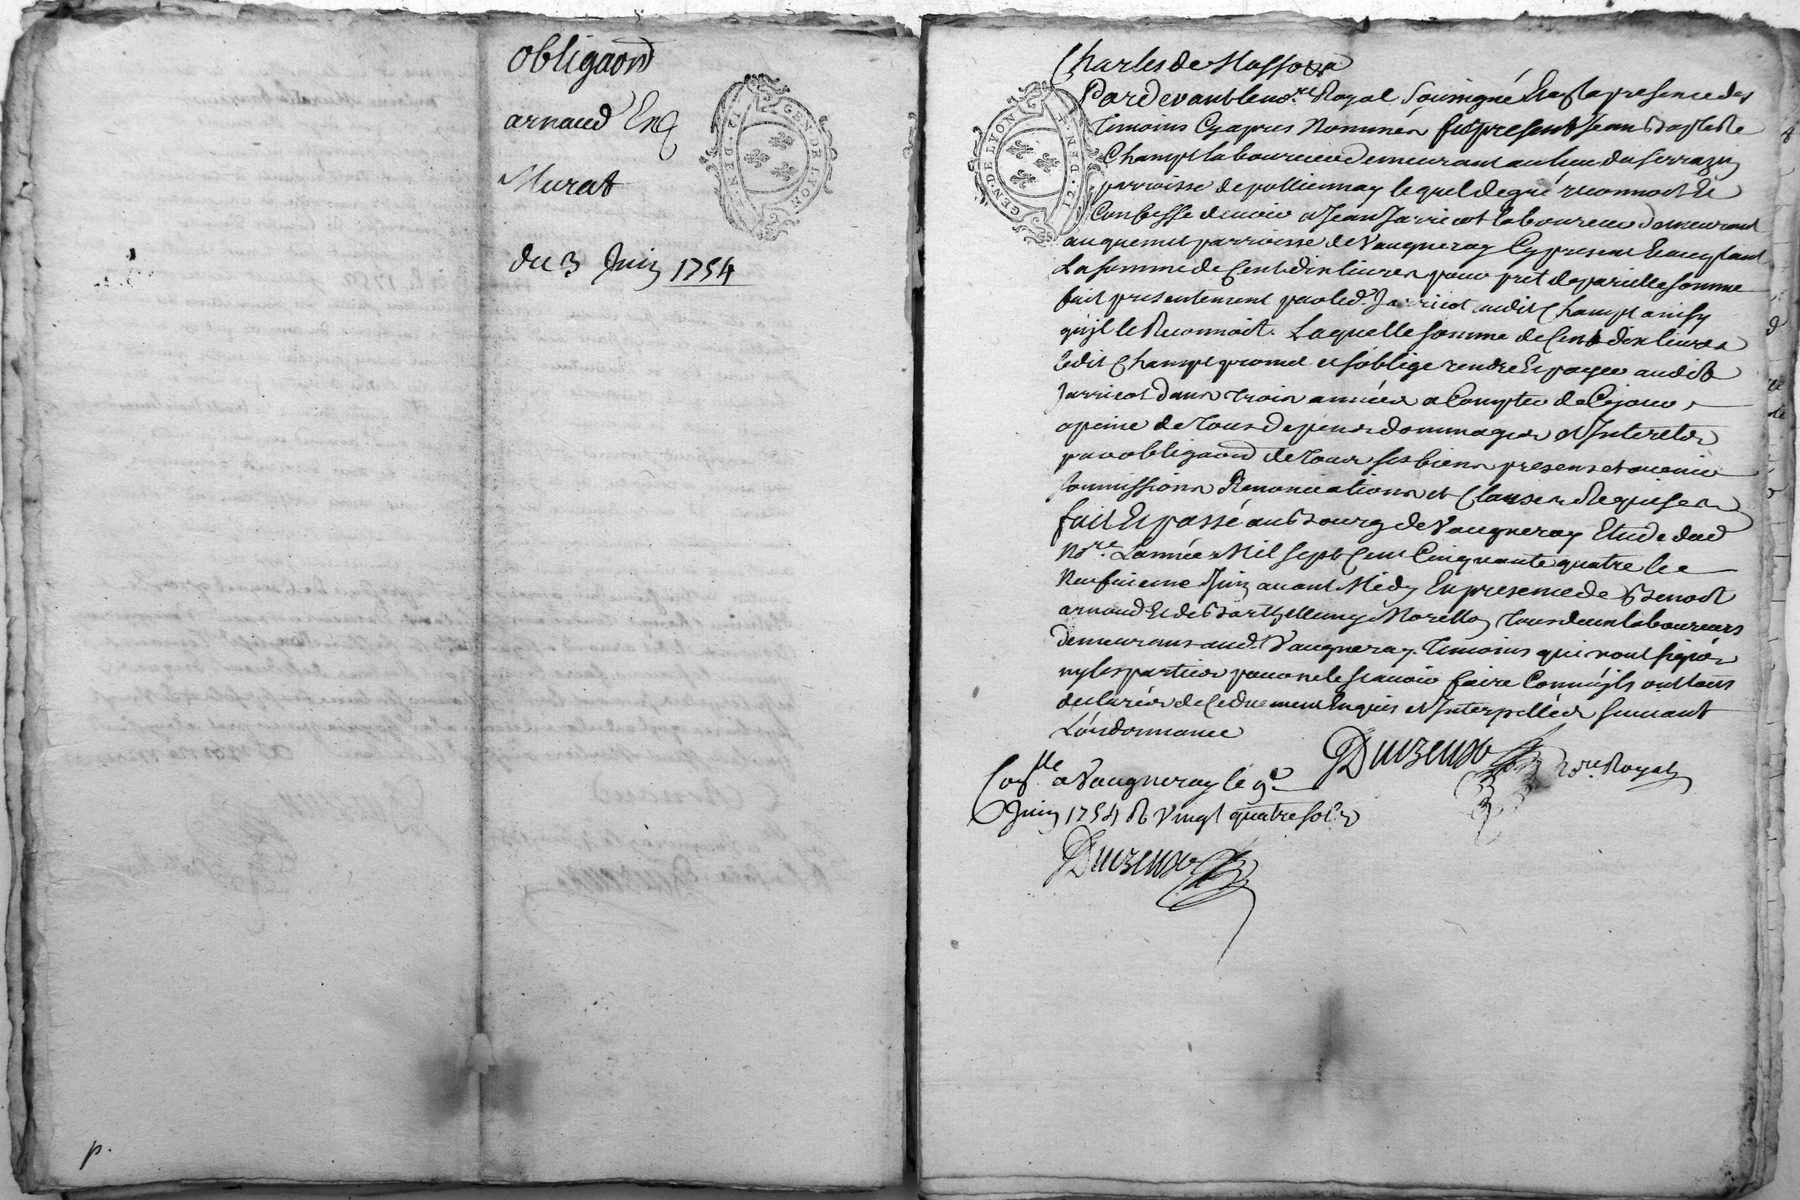 obligaond
arnaud Et
Murat
du 3 Juin 1754
GEN. DE LYON
p.
Charles de Masso
GEN. DE LYON
Pardevant le no.re Royal Soussigné Et en la presence des
Temoins Cy apres Nommés fut present Jean Baptiste
Champt laboureur demeurant au lieu du Serrazin
parroisse de pollionnay lequel de gré reconnoit Et
Confesse devoir a Jean Jarricot laboureur demeurant
au quemet parroisse de Vaugneray Cy present Et aceptant
La Somme de Cent dix livres pour pret de pareille Somme
fait presentement par led. Jarricot audit Champt ainsy
qu'jl le Reconnoit. Laquelle Somme de Cent dix livres
ledit Champt promet et s'oblige rendre Et payer audit
Jarricot Dans trois années a Compter de Ce jour
a peine de tous Depens dommages et Interets
par obligaond de tous ses biens presens et avenir
Soumissions Renonciations et Clauses Requises
fait Et passé au Bourg de Vaugneray Etude dud
No.re L'année Mil Sept Cent Cinquante quatre Le
Neufvieme Juin avant Midy En presence de Benoit
arnaud Et de Barthellemy Morellon tous deux laboureurs
demeurans aud. Vaugneray. temoins qui n'ont signé
ny les parties pour ne le Scavoir faire Comme jls ont tous
declarés de Ce duement Enquis et Interpellés Suivant
L'ordonnance
Duizeux No.re Royal
Con.lle a Vaugneray le 9e
Juin 1754 R. Vingt quatre sols
Duizeux